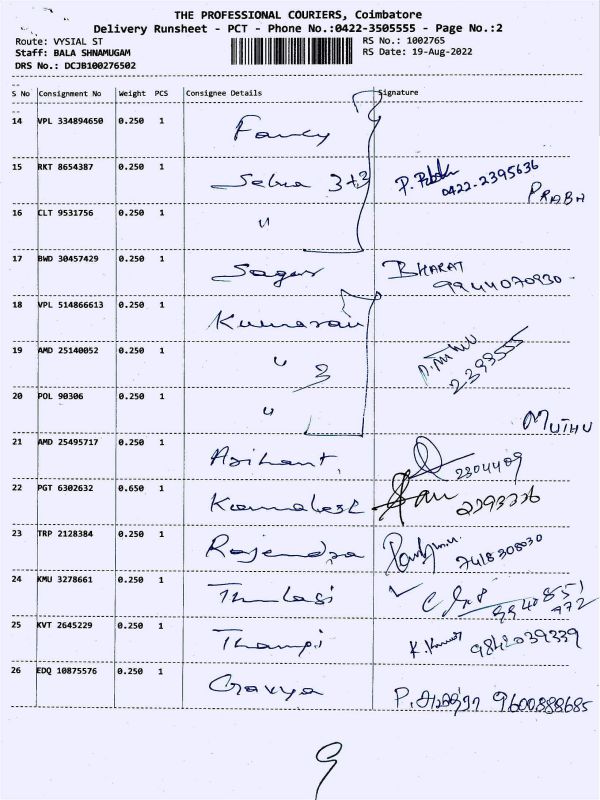 THE PROFESSIONAL COURIERS, Coimbatore
Delivery Runsheet - PCT - Phone No.:0422-3505555 - Page No.:2
Route: VYSIAL ST
RS No.: 1002765
Staff: BALA SHNAMUGAM
RS Date: 19-Aug-2022
DRS No.: DCJB100276502
S No Consignment No Weight PCS Consignee Details Signature
14 VPL 334894650 0.250 1 Fancy
15 RKT 8654387 0.250 1 Selva 3+3 0422-2395636
PRABH
16 CLT 9531756 0.250 1 "
17 BWD 30457429 0.250 1 Sagar BHARAT
9944070930
18 VPL 514866613 0.250 1 Kumaran
19 AMD 25140052 0.250 1 " 3
2393555
20 POL 90306 0.250 1 "
MUTHU
21 AMD 25495717 0.250 1 Arihant. 2304409
22 PGT 6302632 0.650 1 Kamalesh
23 TRP 2128384 0.250 1 Rajendra 7418308030
24 KMU 3278661 0.250 1 Thulasi
25 KVT 2645229 0.250 1 Thampi K. Kumar 9842039339
26 EDQ 10875576 0.250 1 Gavya 9600888685
9